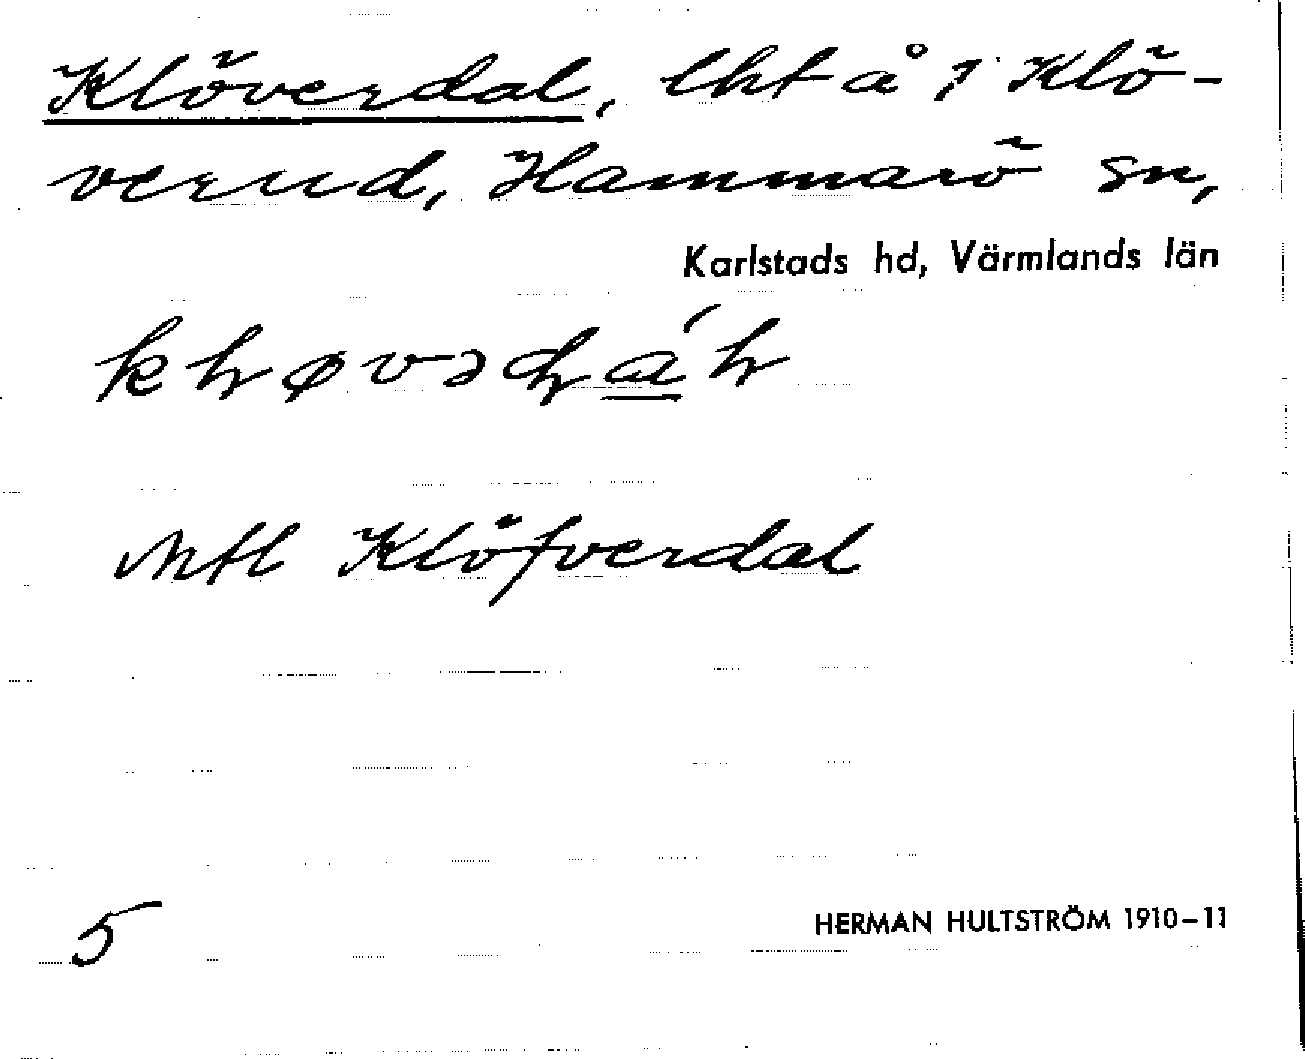 Klöverdal, lht å 1 Klö-
verud, Hammarö sn,
Karlstads hd, Värmlands län
Mtl Klöfverdal
5
HERMAN HULTSTRÖM 1910-11